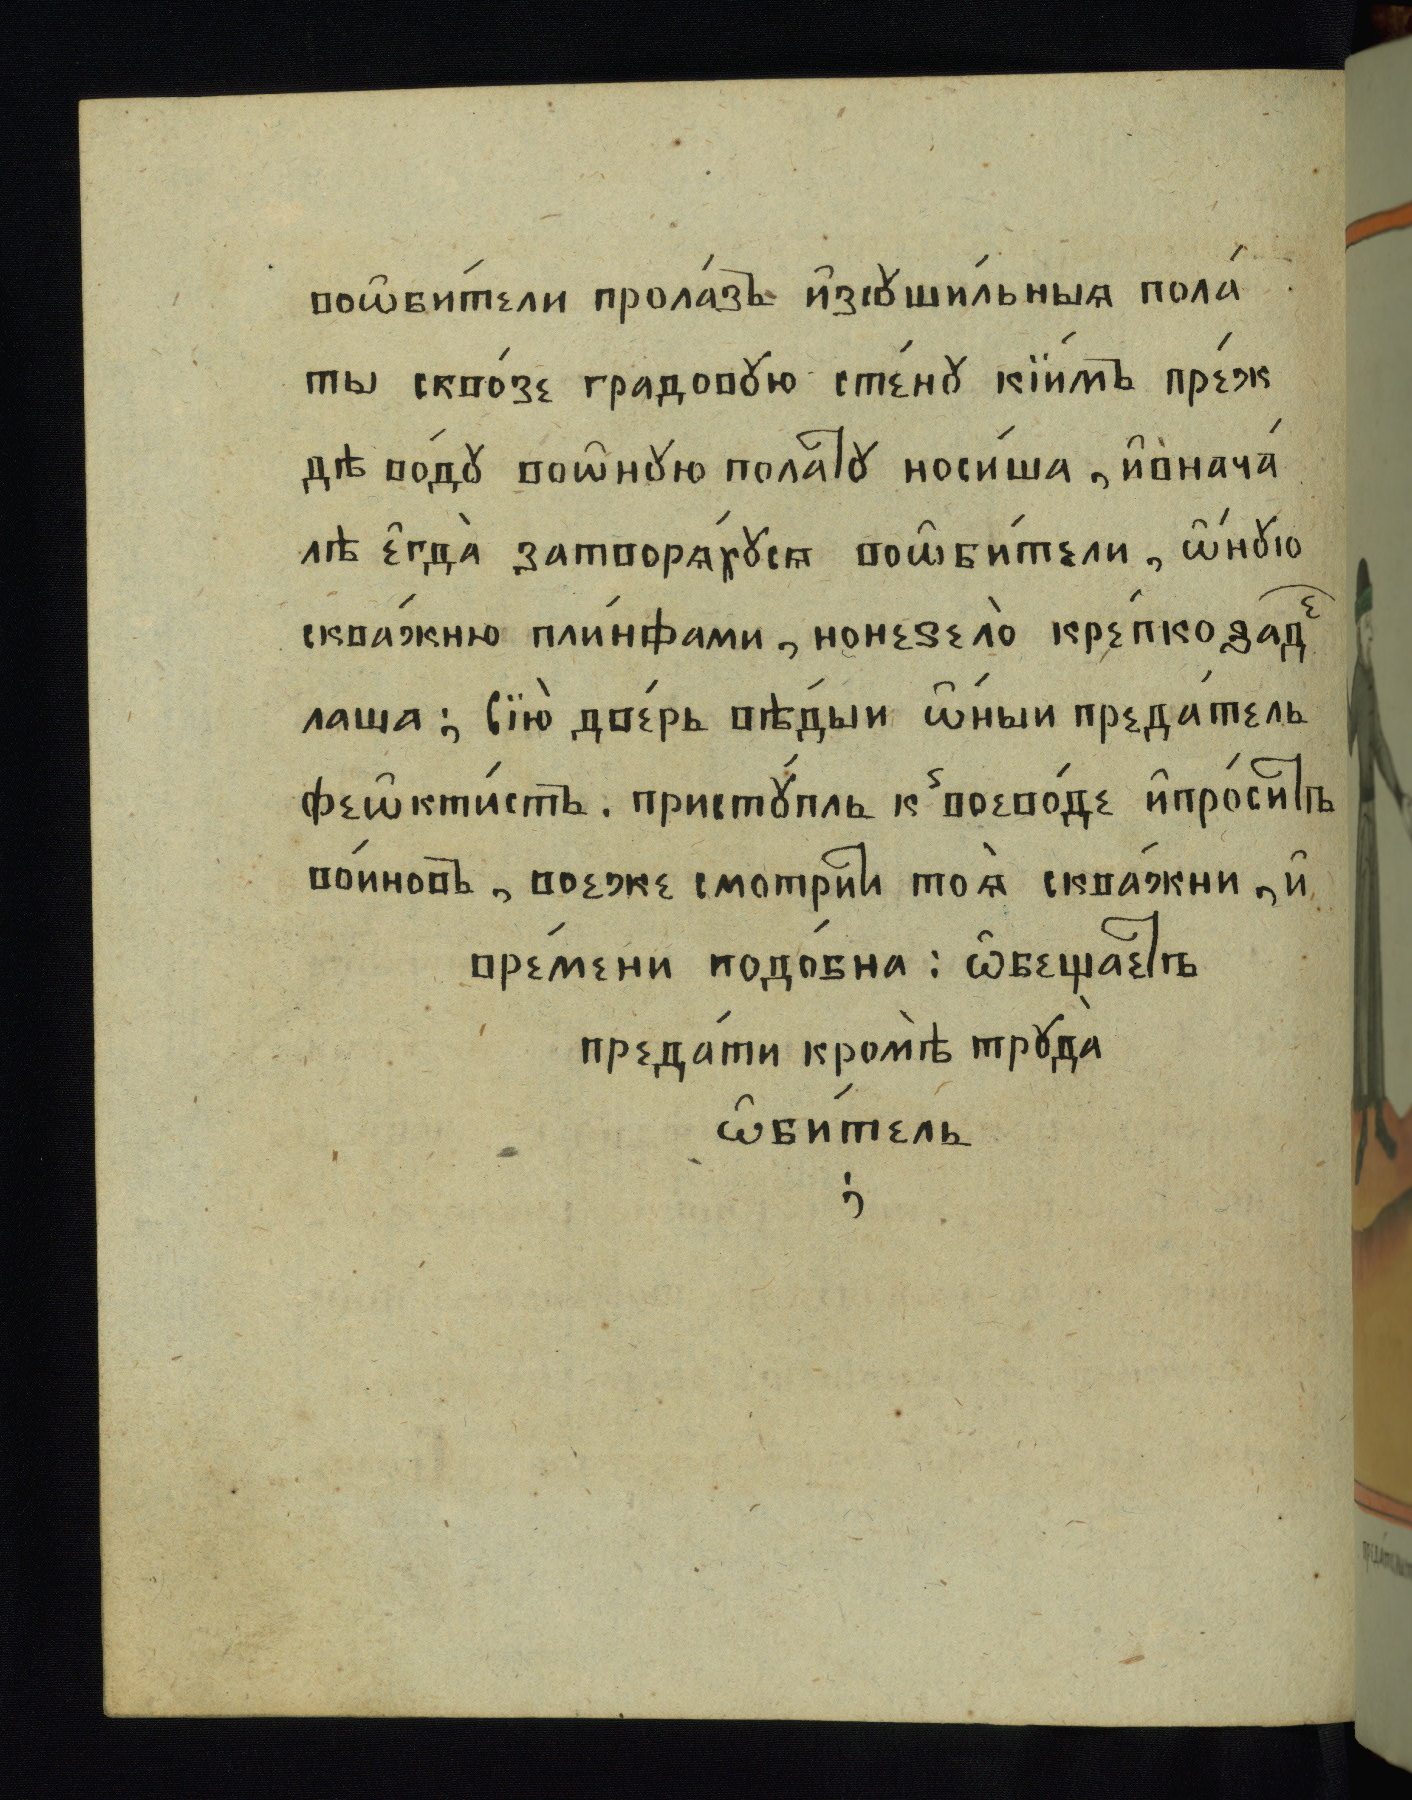 воѡ҆би́тели прола́зъ и҆зсꙋши́льныѧ пола́
ты сквозе́ градовꙋ́ю сте́нꙋ кїи́мъ пре́ж
дѣ во́дꙋ воѡ҆нꙋ́ю пола́тꙋ носи́ша, и҆̀внача́
лѣ є҆гда̀ затворѧ́хꙋсѧ воѡ҆би́тели, ѡ҆́нꙋю
сква́жню пли́нфами, нонеѕело̀ кре́пко задⷷ
лаша; Сїю̀ две́рь вѣ́дыи ѡ҆́ныи преда́тель
феѡ҆кти́стъ. пристꙋ́пль к воево́де и҆про́ситъ
во́иновъ, воеже смотри́ти тоѧ̀ сква́жни, и҆
вре́мени подо́бна: ѡ҆беща́етъ
преда́ти кромѣ̀ трꙋда̀
ѡ҆би́тель
;